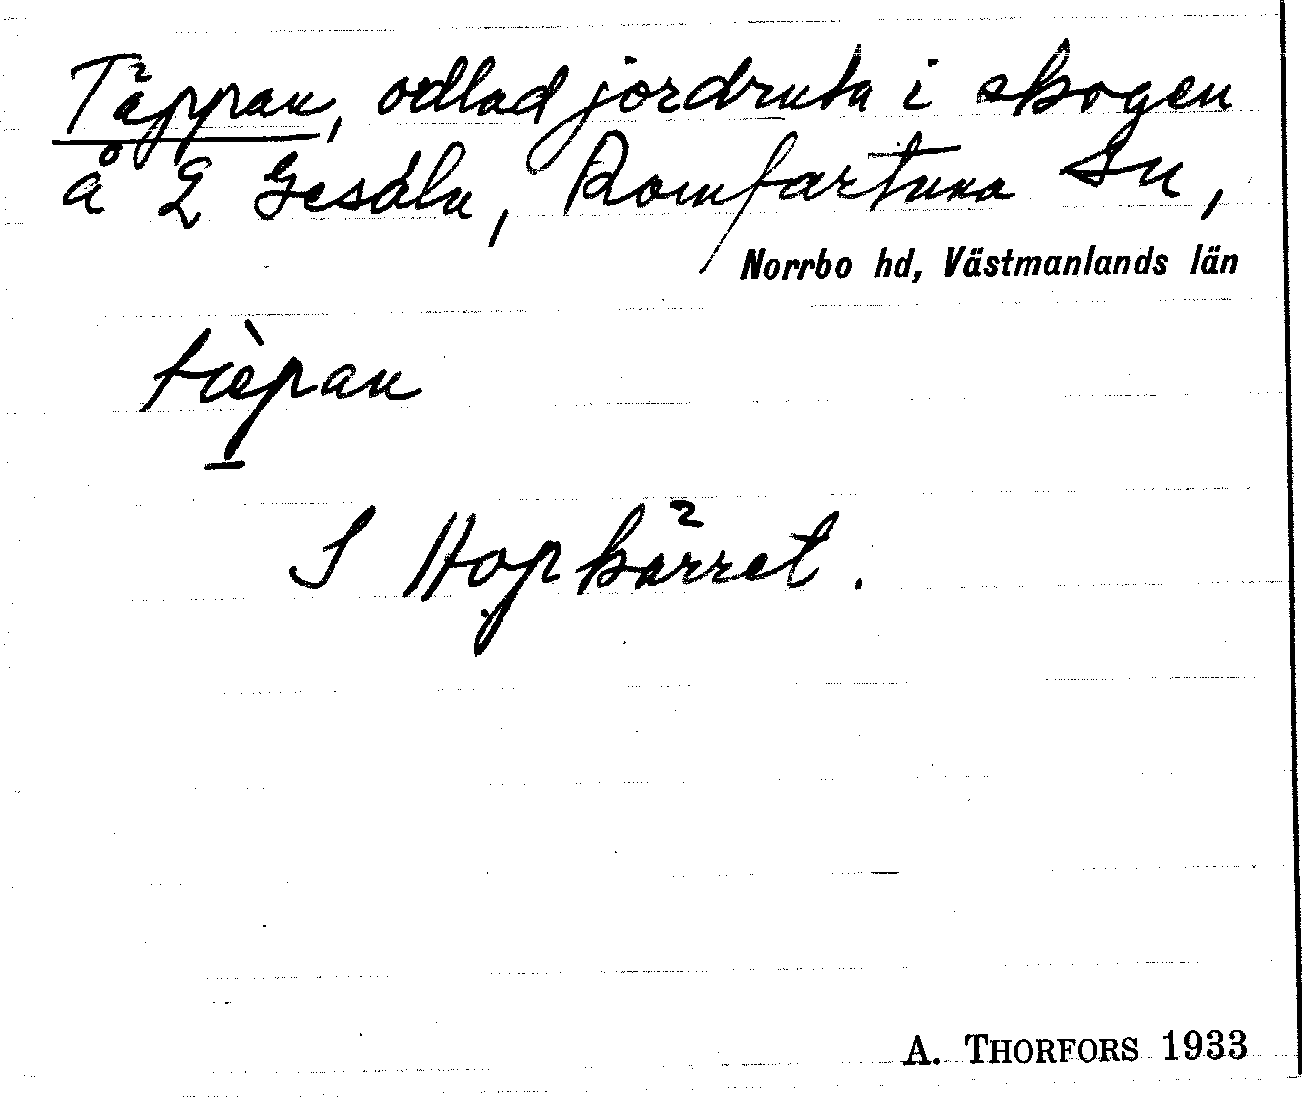 Täppan, odlad jordruta i skogen
å 2 Gesåla, Romfartuna sn,
Norrbo hd, Västmanlands län
tæ̀pan
S Hopkärret.
A. THORFORS 1933